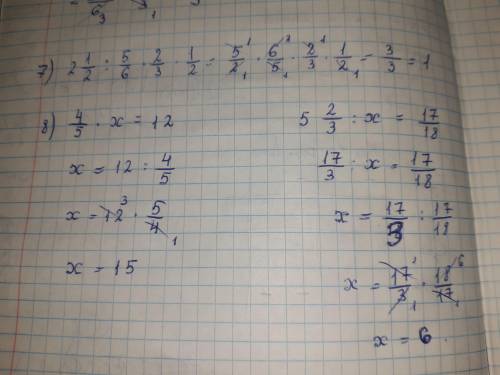 6 3 1
7) 2 1/2 : 5/6 · 2/3 · 1/2 = 5/2 · 6/5 · 2/3 · 1/2 = 3/3 = 1
8) 4/5 · x = 12
x = 12 : 4/5
x = 12 · 5/4
x = 15
5 2/3 : x = 17/18
17/3 : x = 17/18
x = 17/3 : 17/18
x = 17/3 · 18/17
x = 6